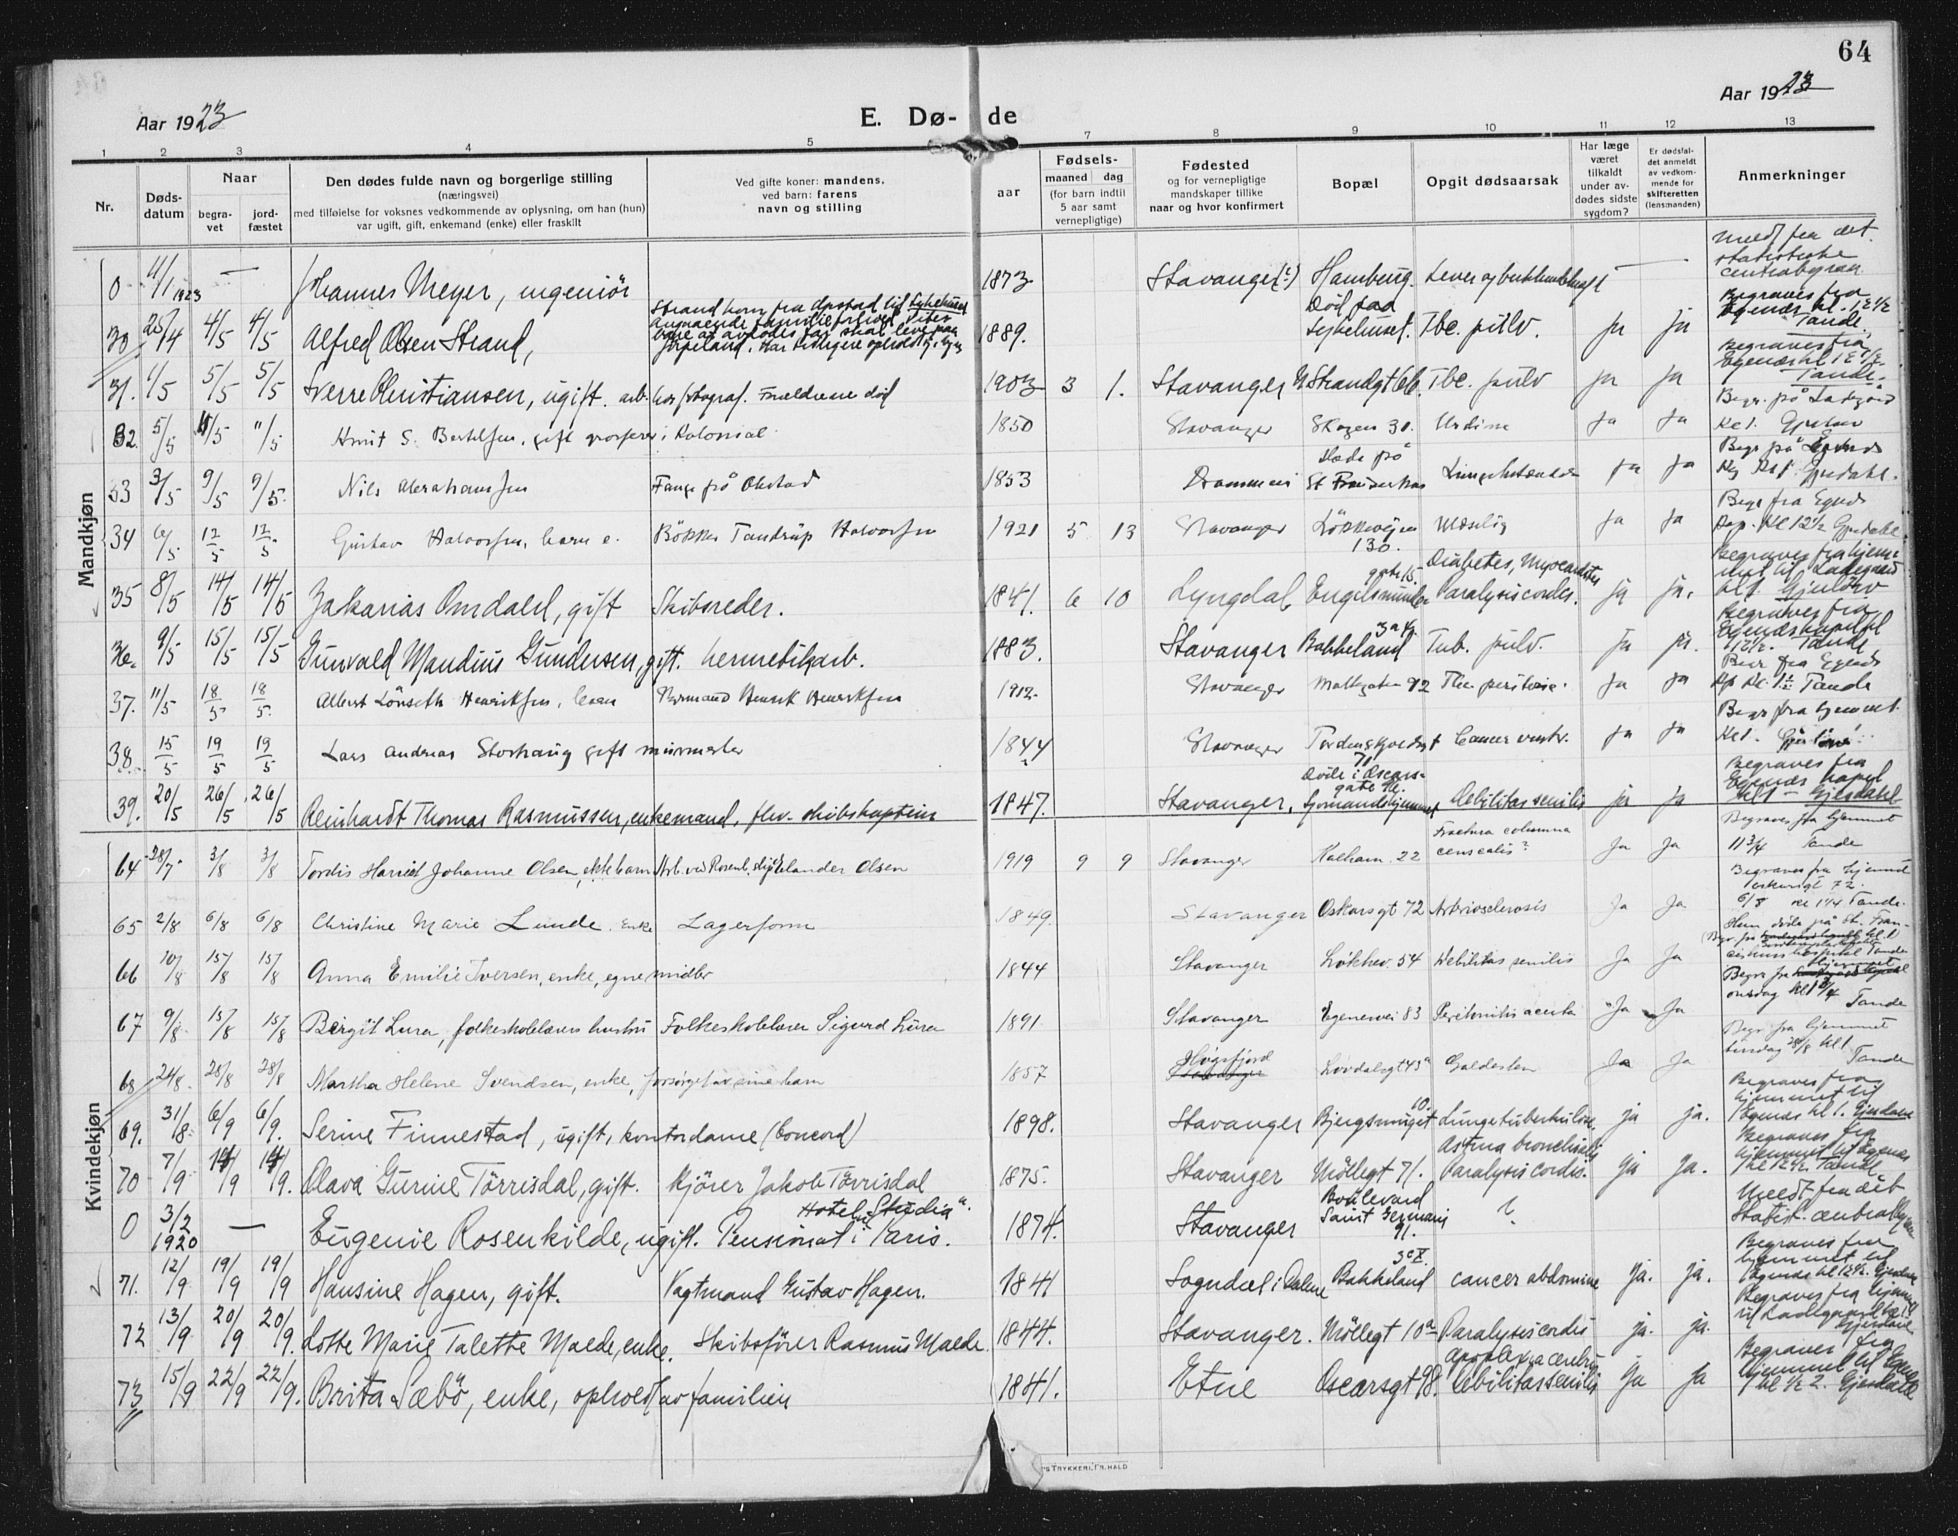 64
Aar 1923
E. Dø- de
Aar 1923
1 2 3 4 5 7 8 9 10 11 12 13
Nr.
Døds-
datum
Naar
begra-
vet
jord-
fæstet
Den dødes fulde navn og borgerlige stilling
(næringsvei)
med tilføielse for voksnes vedkommende av oplysning, om han (hun)
var ugift, gift, enkemand (enke) eller fraskilt
Ved gifte koner: mandens,
ved barn: farens
navn og stilling
aar
Fødsels-
maaned dag
(for barn indtil
5 aar samt
vernepligtige)
Fødested
og for vernepligtige
mandskaper tillike
naar og hvor konfirmert
Bopæl
Opgit dødsaarsak
Har læge
været
tilkaldt
under av-
dødes sidste
sygdom?
Er dødsfal-
det anmeldt
av vedkom-
mende for
skifteretten
(lensmanden)
Anmerkninger
Mandkjøn
0 4/1 1923 — Johannes Meyer, ingeniör 1873 Stavanger(?) Hamburg. — Meldt fra det statistiske centralbyraa
30 25/4 4/5 4/5 Alfred Olsen Strand, 1889. Död paa Sykehuset. Tbc. pulv. ja ja Begraves fra Egenæs kl. 12 1/2 Tande.
31. 1/5 5/5 5/5 Sverre Christiansen, ugift. arb. hos fotograf. Forældrene död 1903 3 1. Stavanger Tbc. pulv ja ja Begraves fra Egenæs kl 12 1/2 Tande.
32. 5/5 11/5 11/5 Knut S. Bertelsen, gift grosserer i Kolonial 1850 Stavanger Skagen 30. Urdima ja ja Begr. på Ladegård Kl 1.
33 3/5 9/5 9/5. Nils Abrahamsen Fange på Opstad 1853 Drammen Döde på St Franciskus ja ja
34 6/5 12/5 12/5 Gustav Halvorsen, barn e. Bökker Tandrup Halvorsen 1921 5 13 Stavanger Lökkeveien 130. ja ja Begr fra Egenæs Kap. Kl 12 1/2 Gjesdahl
35 8/5 14/5 14/5 Zakarias Omdahl, gift Skibsreder. 1841. 6 10 Lyngdal gate 15. Diabetes, Myocarditis Paralysis cordis. ja ja. Begraves fra hjemmet til Ladegaard
36. 9/5 15/5 15/5 Gunvald Mandius Gundersen, gift. hermetikarb. 1883. Stavanger Bakkeland Tub. pulv. ja ja. Begraves fra Egenæs kapel kl 12 1/2. Tande
37. 11/5 18/5 18/5 Albert Lönseth Henriksen, barn Formand Henrik Henriksen 1912. Stavanger ja ja Begr fra Egenæs Kp Kl. 1 1/2 Tande
38. 15/5 19/5 19/5 Lars Andreas Storhaug gift murmester 1844 Stavanger Tordenskjoldsgt 71 Cancer ventr. ja ja Begr fra hjemmet. Kl 1.
39. 20/5 26/5 26/5 Reinhardt Thomas Rasmussen, enkemand, fhv. skibskaptein 1847. Stavanger. Döde i Oscarsgate Sjömandshjemmet Debilitas senilis ja ja Begraves fra Egenæs kapel kl 1 Gjesdahl
Kvindekjøn
64 28/7. 3/8 3/8 Tordis Harriet Johanne Olsen, ekte barn Arb. ved Rosenb. Elander Olsen 1919 9 9 Stavanger 22 Fractura columna ja ja Begraves fra hjemmet 11 3/4 Tande
65 2/8 6/8 6/8 Christine Marie Lunde. Enke Lagerform 1849. Stavanger Oskarsgt 72 Arteriosclerosis ja ja Begraves fra hjemmet 6/8 Tande.
66 10/8 15/8 15/8 Anna Emilie Iversen, enke, egne midler 1844 Stavanger Lökkev. 54 Debilitas senilis ja ja Hun döde på St. Franciskus hospital Tande
67 9/8 15/8 15/8 Birgit Lura, folkeskolelærers hustru Folkeskolelærer Sigurd Lura 1891 Stavanger Egenesvei 83 Peritonitis acuta ja ja Begr fra hjemmet onsdag Tande
68 24/8. 28/8 28/8 Martha Helene Svendsen, enke, forsörget av sine barn 1857 Högsfjord Lövdalsgt 43a Galdesten ja ja Begr. fra hjemmet tirsdag 28/8 kl 1 Tande
69. 31/8 6/9 6/9. Serine Finnestad, ugift, kontordame (Concord) 1898. Stavanger Bjergsmuget 10. Lungetuberkulose. ja ja. Begraves fra hjemmet til Egenæs kl 1. Gjesdahl
70 7/9 14/9 14/9. Olava Gurine Törrisdal, gift. Kjörer Jakob Törrisdal 1875. Stavanger Möllegt 71. Astma bronchiale Paralysis cordis. ja ja. Begraves fra hjemmet til Egenæs kl 12 1/2. Tande
0 3/2 1920 — Eugenie Rosenkilde, ugift. Pensionat i Paris. Hotel "Studia". 1874. Stavanger Boulevard Saint Germain 91. ? Meldt fra det statist. centralbyraa
71. 12/9 19/9 19/9 Hansine Hagen, gift. Vagtmand Gustav Hagen. 1841 Sogndal i Dalene Bakkeland cancer abdomine ja. ja. Begraves fra hjemmet til Egenæs kl 12 1/2. Gjesdahl
72 13/9 20/9 20/9. Lotte Marie Talette Malde, enke. Skibsförer Rasmus Malde. 1844. Stavanger. Möllegt 10a Paralysis cordis ja. ja. Begraves fra hjemmet til Ladegaard kl 1. Gjesdahl
73 15/9 22/9 22/9. Brita Sæbö, enke, ophold av familien 1841. Etne Oscarsgt 98. Apoplexia cerebri Debilitas senilis ja ja Begraves fra hjemmet til Egenæs kl 1/2 2. Gjesdahl
TRYKKERI, FR. HALD